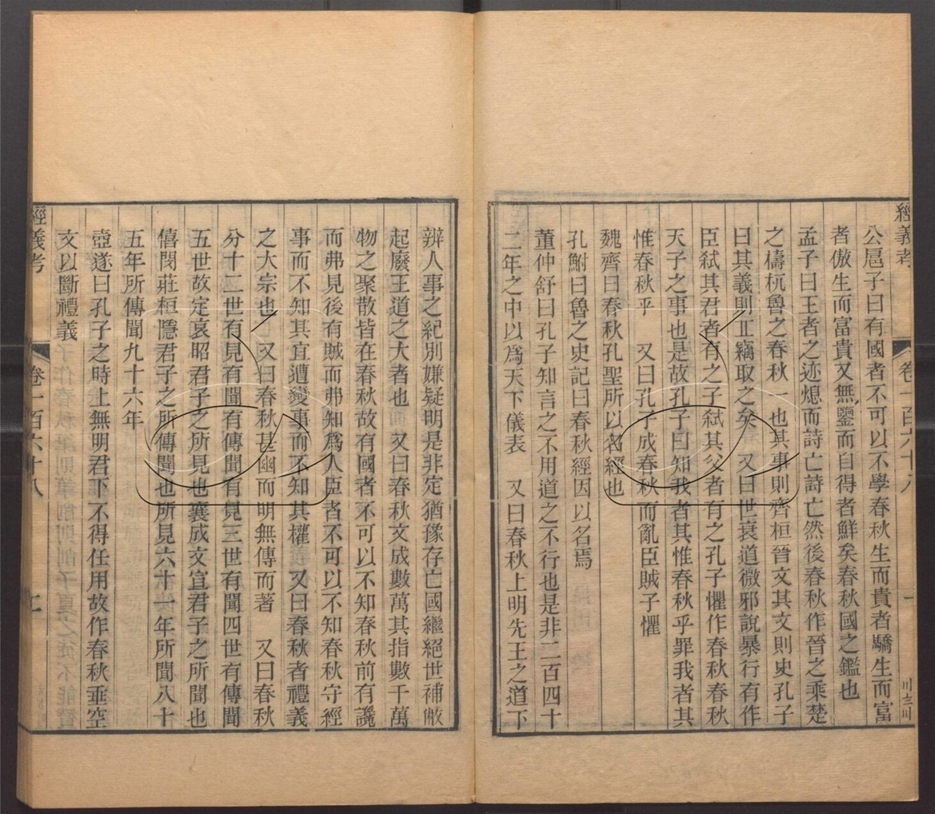 經義考
卷一百六十八
公扈子曰有國者不可以不學春秋生而貴者驕生而富
者傲生而富貴又無鑒而自得者鮮矣春秋國之鑑也
孟子曰王者之迹熄而詩亡詩亡然後春秋作晉之乘楚
之檮杌魯之春秋一也其事則齊桓晉文其文則史孔子
曰其義則丘竊取之矣 又曰世衰道微邪說暴行有作
臣弒其君者有之子弒其父者有之孔子懼作春秋春秋
天子之事也是故孔子曰知我者其惟春秋乎罪我者其
惟春秋乎 又曰孔子成春秋而亂臣賊子懼
魏齊曰春秋孔聖所以名經也
孔鮒曰魯之史記曰春秋經因以名焉
董仲舒曰孔子知言之不用道之不行也是非二百四十
二年之中以爲天下儀表 又曰春秋上明先王之道下
辨人事之紀別嫌疑明是非定猶豫存亡國繼絕世補敝
起廢王道之大者也 又曰春秋文成數萬其指數千萬
物之聚散皆在春秋故有國者不可以不知春秋前有讒
而弗見後有賊而弗知爲人臣者不可以不知春秋守經
事而不知其宜遭變事而不知其權 又曰春秋者禮義
之大宗也 又曰春秋甚幽而明無傳而著 又曰春秋
分十二世有見有聞有傳聞有見三世有聞四世有傳聞
五世故定哀昭君子之所見也襄成文宣君子之所聞也
僖閔莊桓隱君子之所傳聞也所見六十一年所聞八十
五年所傳聞九十六年
壺遂曰孔子之時上無明君下不得任用故作春秋垂空
文以斷禮義
經義考
卷一百六十八